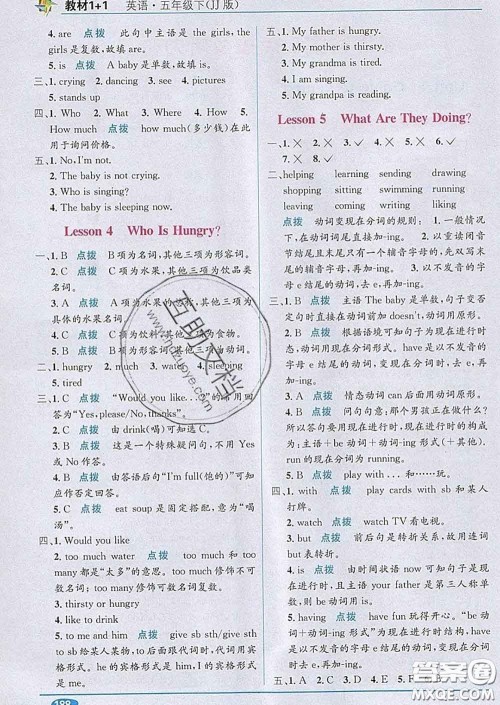 教材1+1 英语·五年级下(JJ版)
4. are 点拨 此句中主语是 the girls, the
girls 是复数, 故填 are。
5. is 点拨 A baby 是单数, 故填 is。
三、1. crying 2. dancing 3. see 4. pictures
5. stands up
四、1. Who 2. What 3. Where 4. How
5. How much 点拨 how much(多少钱)在此
用于询问价格。
五、1. No, I'm not.
2. The baby is not crying.
3. Who is singing?
4. The baby is sleeping now.
Lesson 4 Who Is Hungry?
一、1. B 点拨 B项为名词, 其他三项为形容词。
2. C 点拨 C项为水果, 其他三项为饮品类
名词。
3. A 点拨 A项为水果的总称, 其他三项为
具体的水果名词。
4. C 点拨 C项为饮料, 其他三项为食物。
5. B 点拨 B项为形容词, 其他三项为动词。
二、1. hungry 2. much 3. water 4. sleeping
5. tired
三、1. C 点拨 "Would you like…?"常用回
答为"Yes, please/No, thanks"。
2. C 点拨 由 drink(喝)可知选 C。
3. B 点拨 这是一个特殊疑问句, 不用 Yes
或 No 作答。
4. B 点拨 由答语后句"I'm full(饱的)"可知
应作否定回答。
5. C 点拨 eat soup 是固定搭配, 意为"喝
汤"。
四、1. Would you like
2. too much water 点拨 too much 和 too
many 都是"太多"的意思。too much 修饰不
可数名词, too many 修饰可数名词复数。
3. thirsty or hungry
4. like to drink
5. to me and him 点拨 give sb sth/give sth
to sb 给某人某物, 动词后面出现代词, 代词用宾
格形式。he 的宾格形式是 him, I 的宾格形式
是 me。
188
五、1. My brother is crying.
2. My father is hungry.
3. My grandma is tired.
4. I am singing.
5. My grandpa is reading.
Lesson 5 What Are They Doing?
一、1. × 2. × 3. × 4. √ 5. × 6. √
7. × 8. √
二、helping learning sending drawing
shopping sitting swimming running
leaving coming writing liking
点拨 动词变现在分词的规则: 1. 一般情况
下, 在动词词尾直接加-ing。2. 以重读闭音
节结尾且末尾只有一个辅音字母的, 先双写这
一辅音字母, 再加-ing。3. 以不发音的字母
e 结尾的, 去 e, 再加-ing。
三、1. B 点拨 主语 The baby 是单数, 句子变否
定句时直接在动词前加 doesn't, 动词用原形。
2. B 点拨 根据语境可知句子为现在进行
时, 因此动词用现在分词形式。have 是以不
发音的字母 e 结尾的单词, 要去 e, 再加-ing。
3. A 点拨 情态动词 can 后面用动词原形。
4. B 点拨 问句句意: 那个男孩正在做什么?
所以回答要用现在进行时的句子。它的结构
为: 主语＋be 动词＋动词-ing 形式(＋其他)。
run 的现在分词为 running。
5. B 点拨 play with 和……玩。
四、1. with 点拨 play cards with sb 和某人
打牌。
2. watch 点拨 watch TV 看电视。
3. but 点拨 前后句是转折关系, 故用连词
but 表转折。
4. is 点拨 由时间状语 now 可知句子是现
在进行时, 且主语 your father 是第三人称单
数, 故 be 动词用 is。
5. having 点拨 have fun 玩得开心。"be
动词＋动词-ing 形式"为现在进行时的结构, have
是以不发音的字母 e 结尾的动词, 故去掉 e, 再
加-ing。
五、1. A 2. B 3. A 4. A 5. B
互助文档
答案圈
MXQE.COM